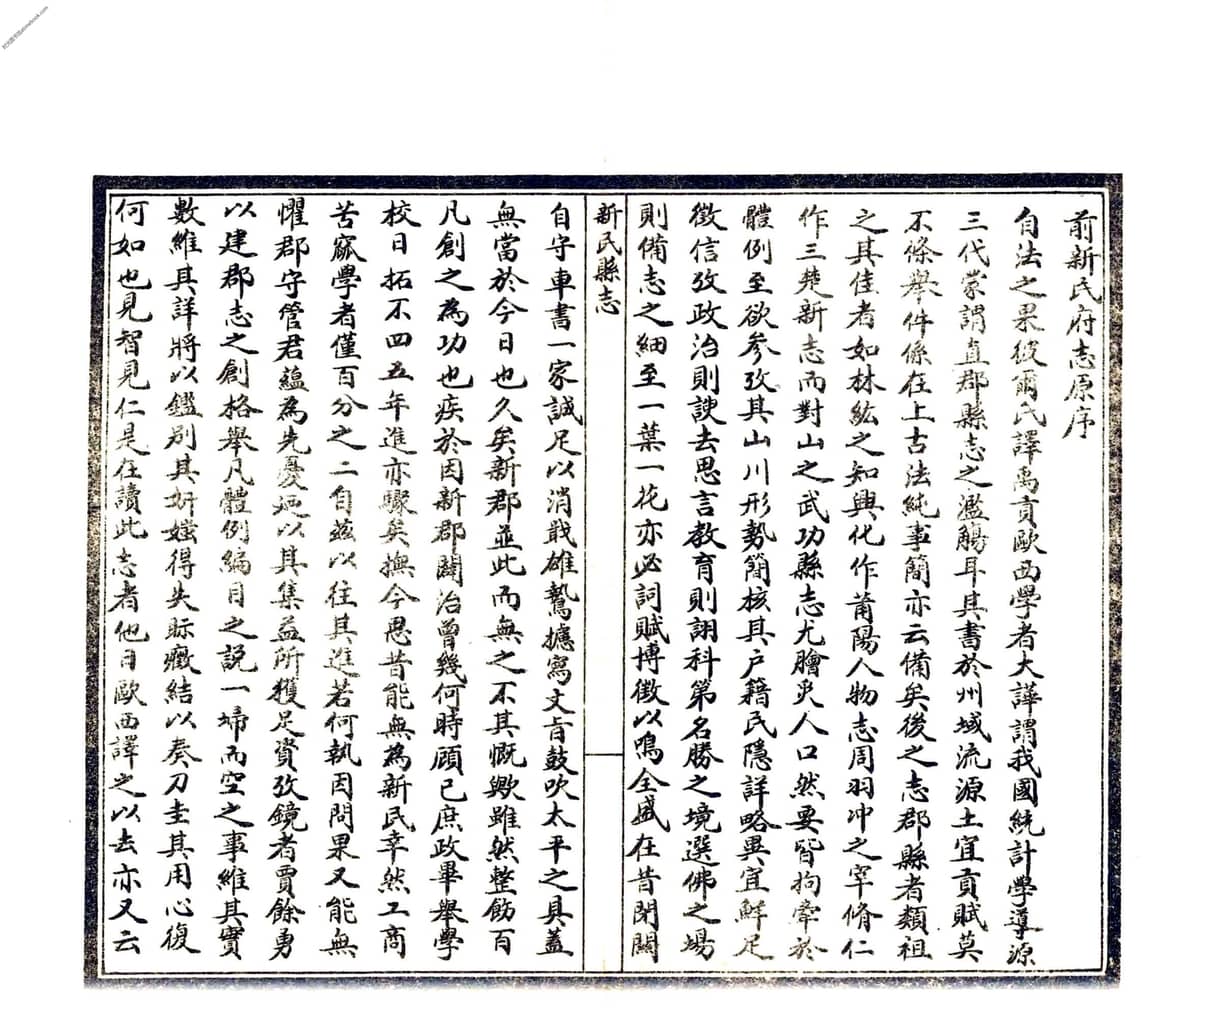 前新民府志原序
自法之果彼爾氏譯禹貢歐西學者大譁謂我國統計學導源
三代蒙謂直郡縣志之濫觴耳其書於州域流源土宜貢賦莫
不條舉件係在上古法純事簡亦云備矣後之志郡縣者類祖
之其佳者如林紘之知興化作莆陽人物志周羽冲之宰脩仁
作三楚新志而對山之武功縣志尤膾炙人口然要皆拘牽於
體例至欲參攷其山川形勢簡核其戶籍民隱詳略異宜鮮足
徵信攷政治則諛去思言教育則詡科第名勝之境選佛之場
則備志之細至一葉一花亦必詞賦博徵以鳴全盛在昔閉關
新民縣志
自守車書一家誠足以消戢雄鷙攄寫文旨鼓吹太平之具蓋
無當於今日也久矣新郡並此而無之不其慨歟雖然整飭百
凡創之為功也疾於因新郡闢治曾幾何時顧已庶政畢舉學
校日拓不四五年進亦驟矣撫今思昔能無為新民幸然工商
苦窳學者僅百分之二自茲以往其進若何執因問果又能無
懼郡守管君蘊為先憂迺以其集益所獲足資攷鏡者賈餘勇
以建郡志之創格舉凡體例編目之說一埽而空之事維其實
數維其詳將以鑑別其妍媸得失眎癥結以奏刀圭其用心復
何如也見智見仁是在讀此志者他日歐西譯之以去亦又云